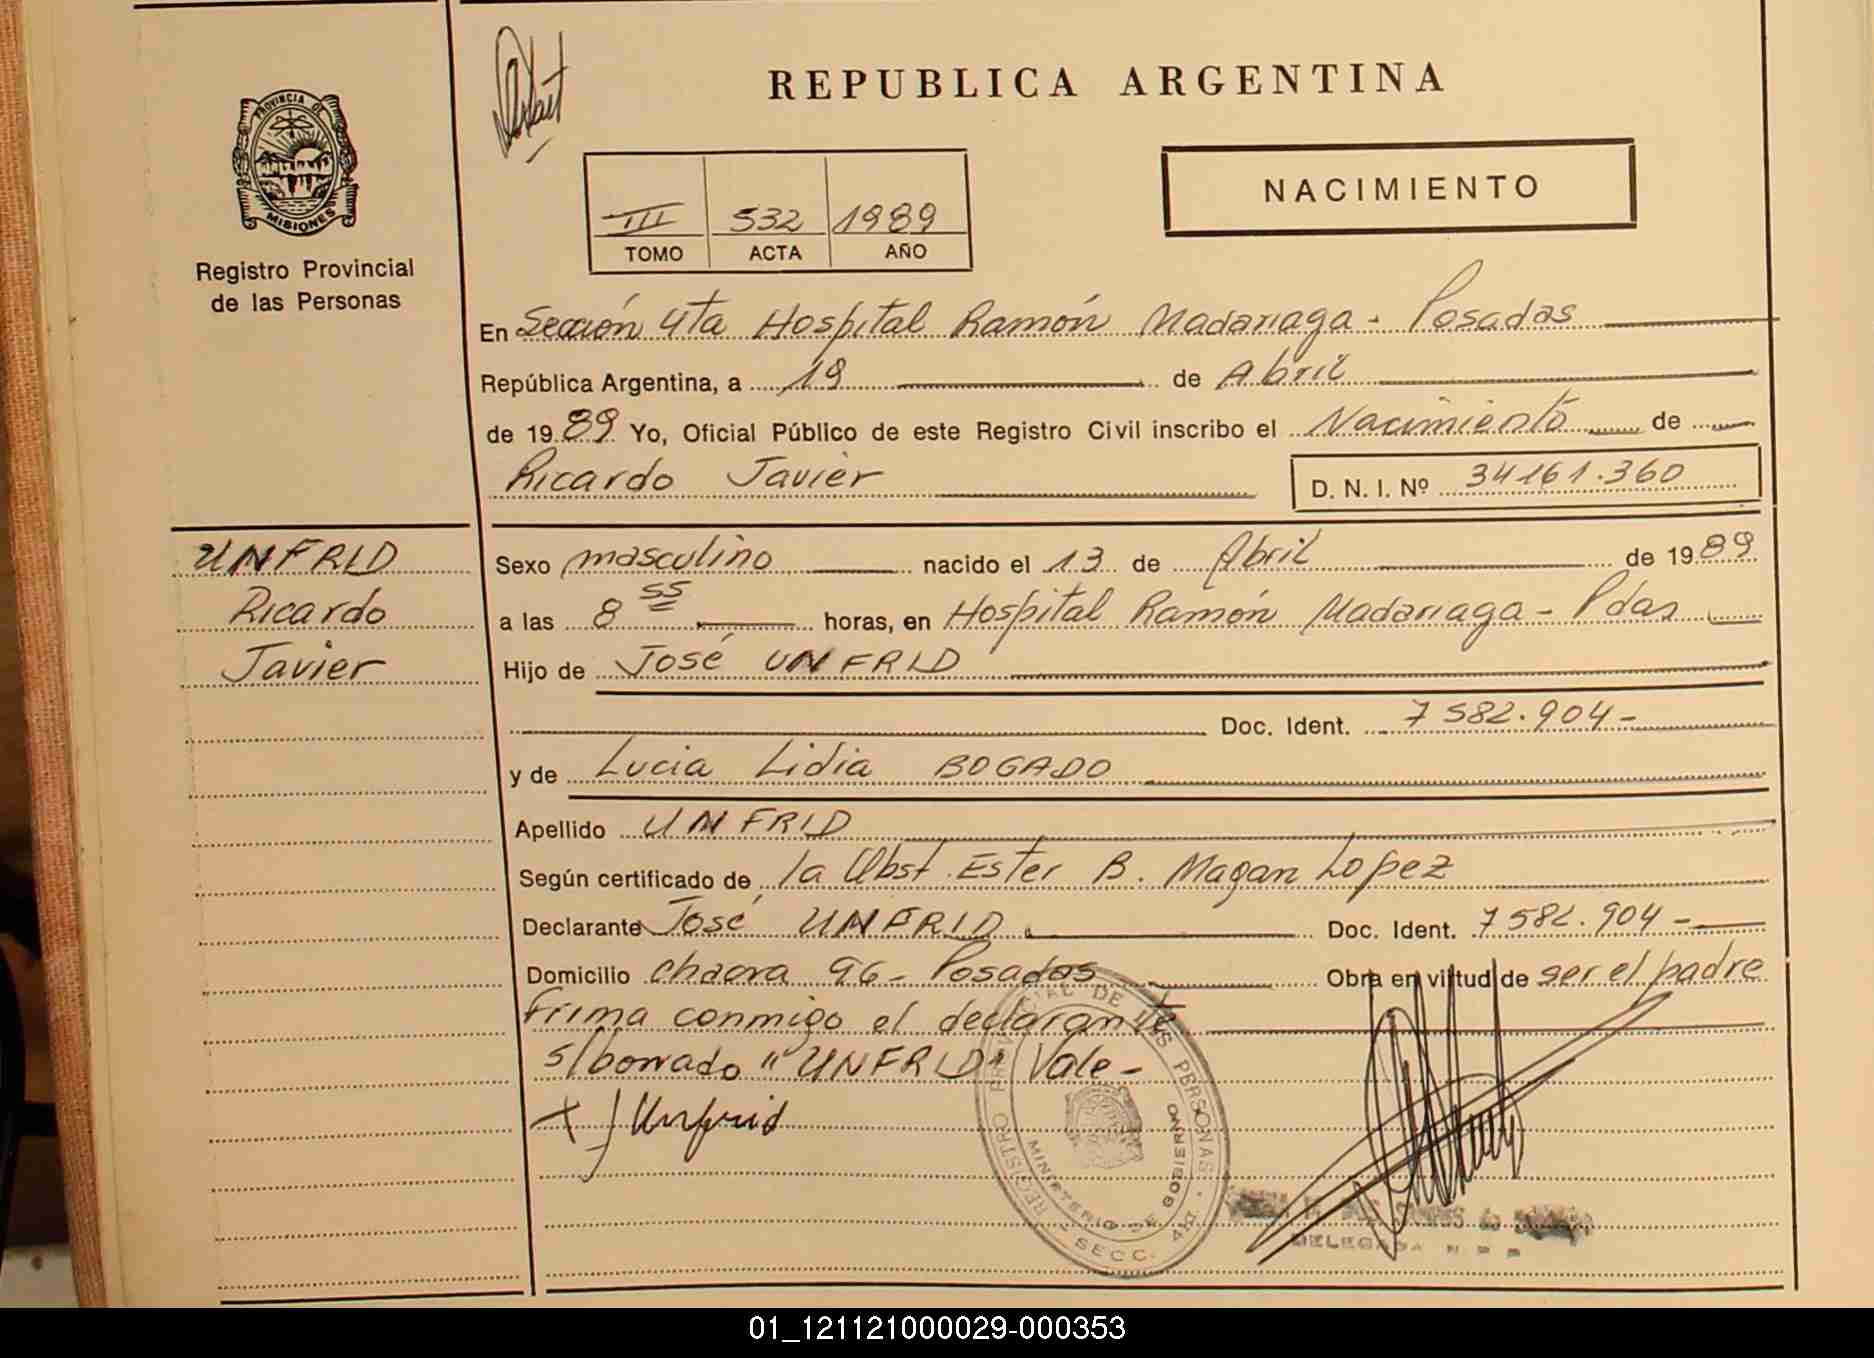 REPUBLICA ARGENTINA
PROVINCIA DE
MISIONES
Registro Provincial
de las Personas
NACIMIENTO
III 532 1989
TOMO ACTA AÑO
En Sección 4ta Hospital Ramón Madariaga - Posadas
República Argentina, a 19 de Abril
de 1989 Yo, Oficial Público de este Registro Civil inscribo el Nacimiento de
Ricardo Javier D. N. I. Nº 34161.360
UNFRID
Ricardo
Javier
Sexo masculino nacido el 13 de Abril de 1989
a las 8 55 horas, en Hospital Ramón Madariaga - Pdas
Hijo de José UNFRID
Doc. Ident. 7582.904-
y de Lucia Lidia BOGADO
Apellido UNFRID
Según certificado de la Obst. Ester B. Magan Lopez
Declarante José UNFRID Doc. Ident. 7582.904-
Domicilio chacra 96- Posadas Obra en virtud de ser el padre
Frima conmigo el declarante
s/borrado "UNFRID" Vale-
Unfrid
REGISTRO PROVINCIAL DE LAS PERSONAS
MINISTERIO DE GOBIERNO
SECC. 4ta
DELEGADA
01_121121000029-000353